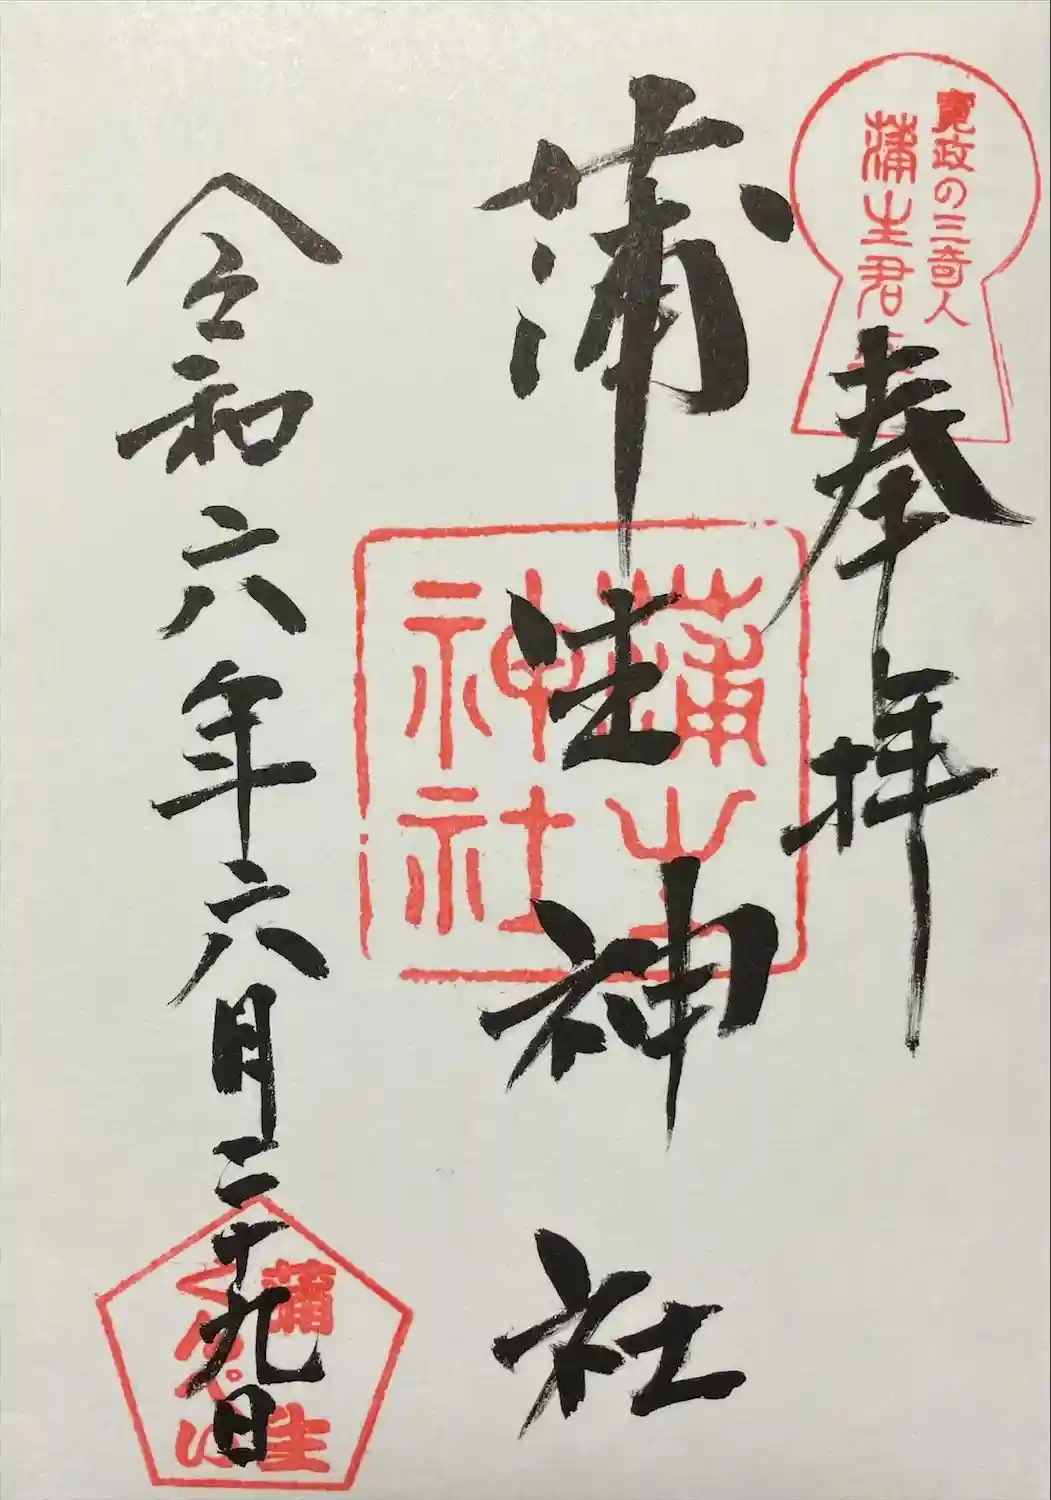 寛政の三奇人
蒲生君
奉拝
蒲生神社
蒲生
神社
令和六年六月二十九日
蒲生
くんぺい